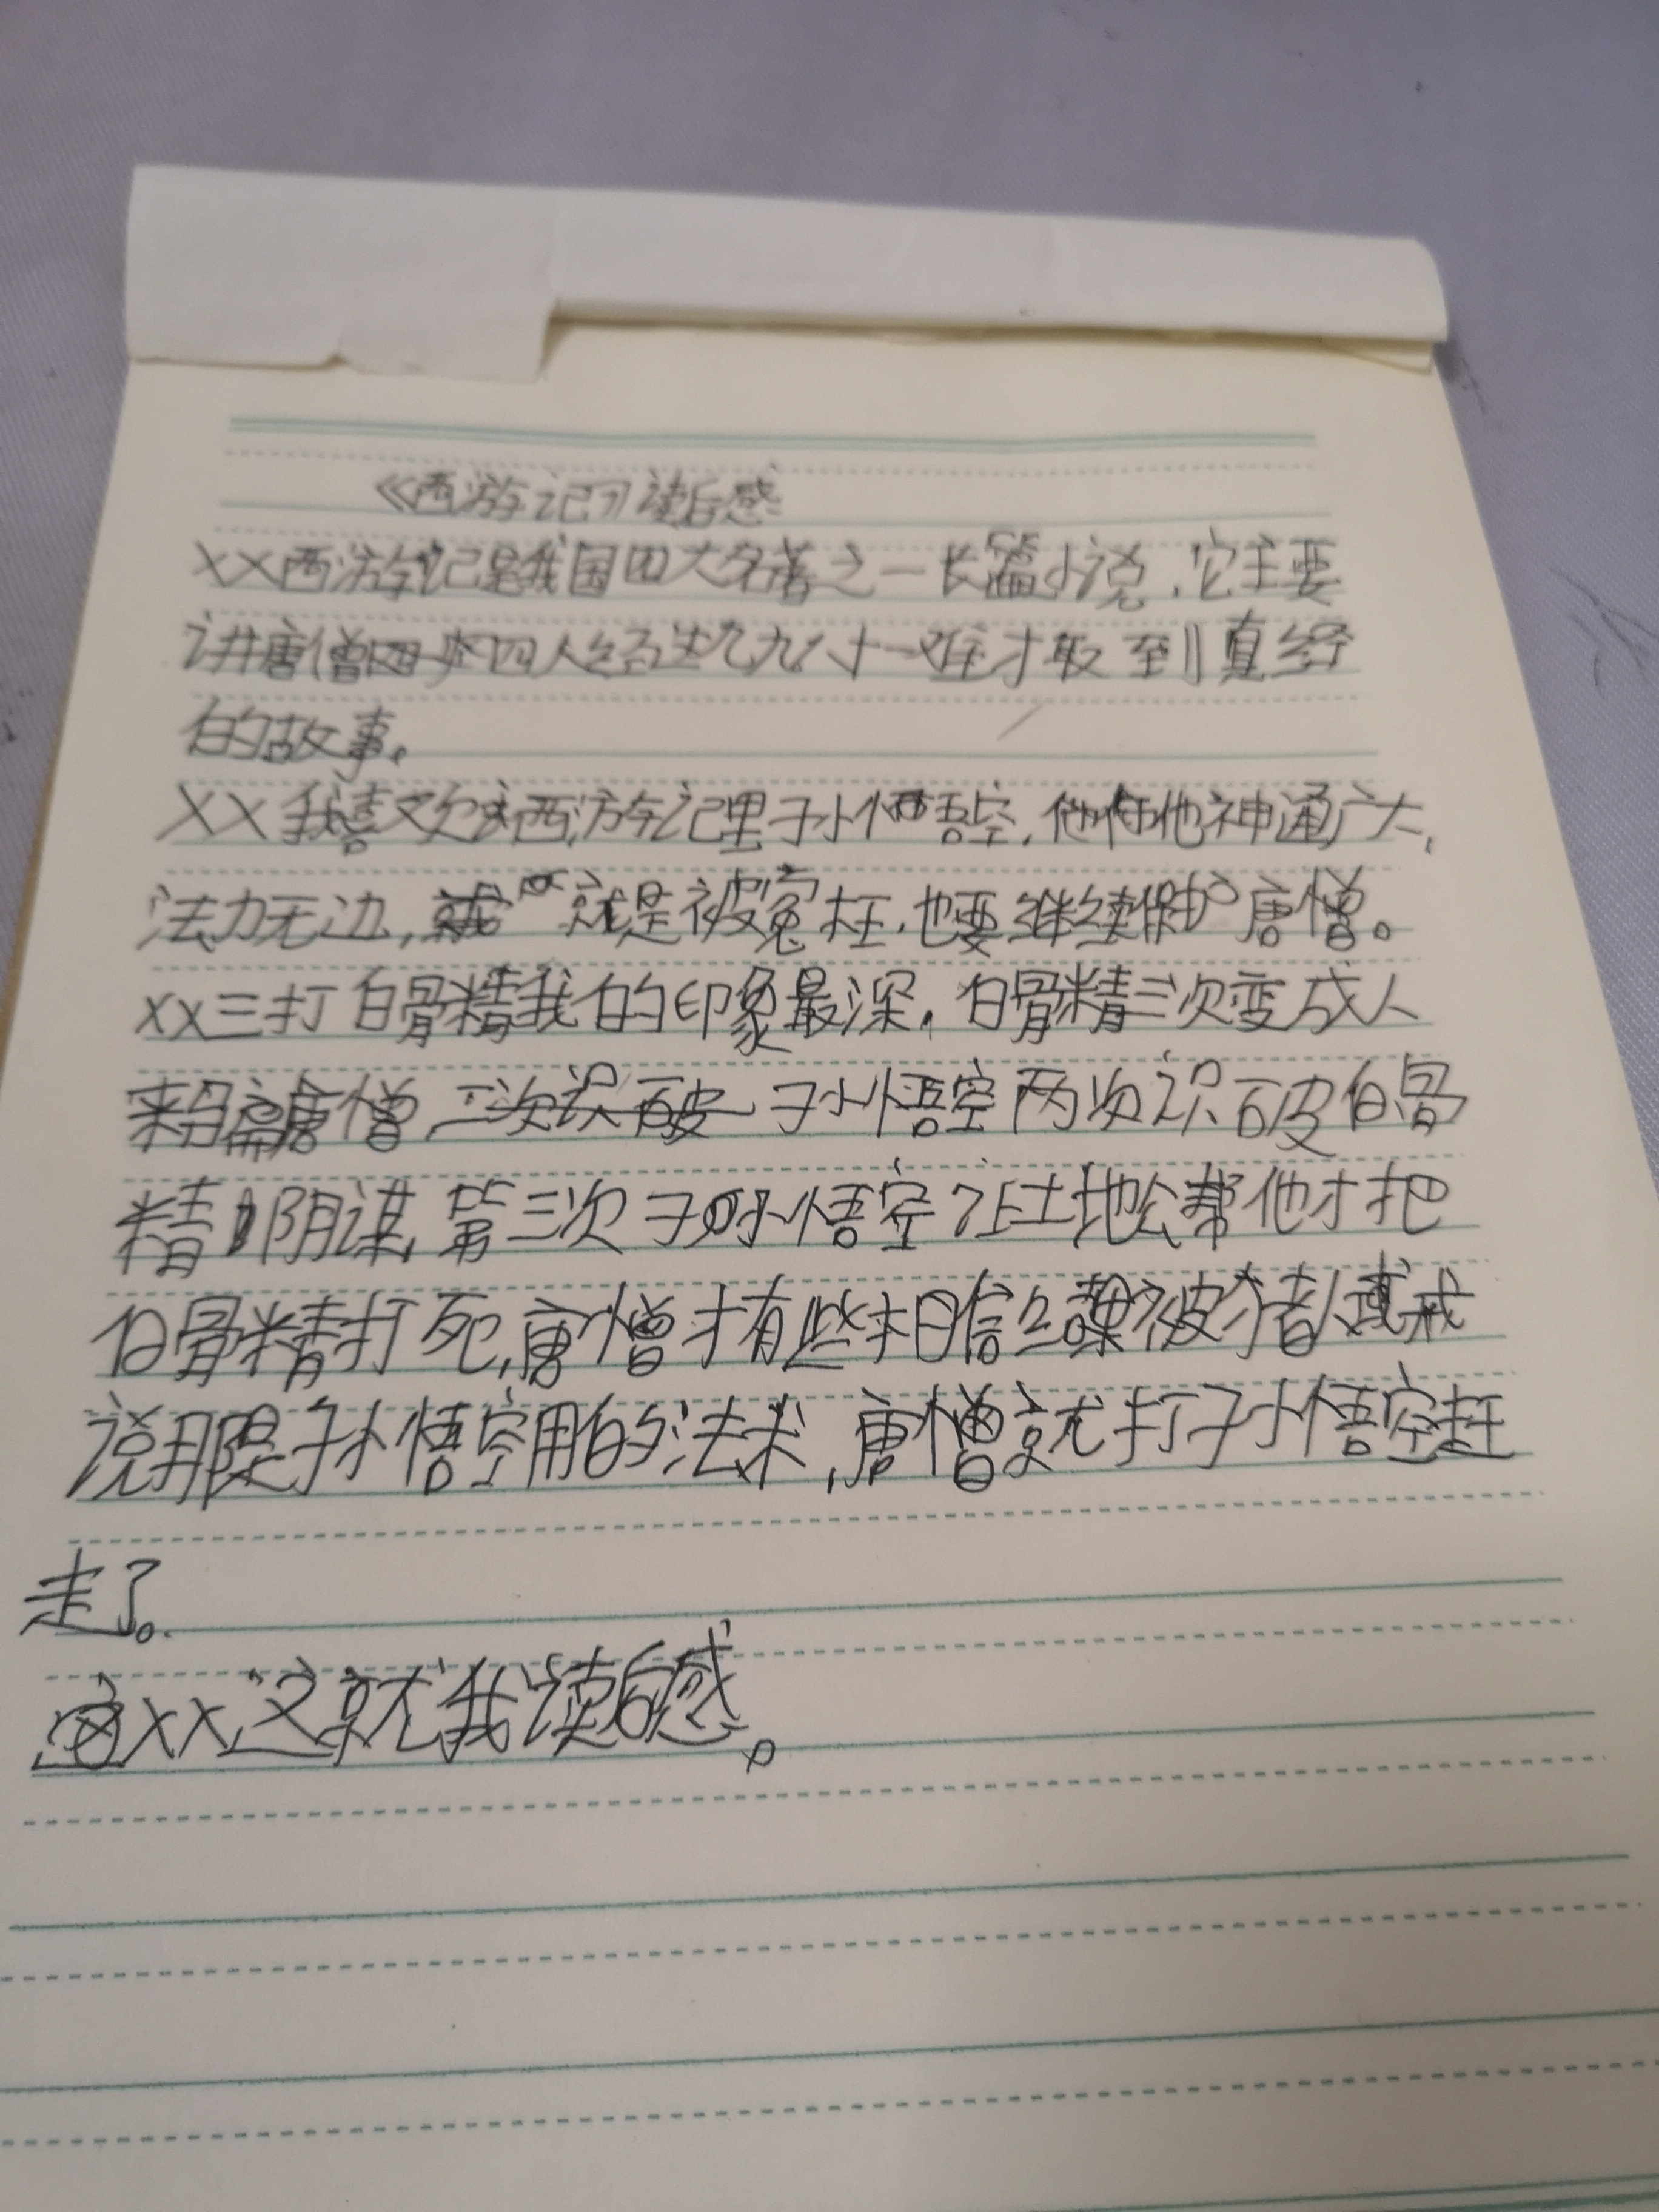 《西游记》读后感
XX西游记是我国四大名著之一长篇小说,它主要
讲唐僧四人经过九九八十一难才取到真经
的故事。
XX我喜欢西游记里孙悟空,他神通广大,
法力无边,就是被冤枉,也要继续保护唐僧。
XX三打白骨精我的印象最深,白骨精三次变成人
来骗唐僧,孙悟空两次识破白骨
精阴谋,第三次孙悟空让土地公帮他才把
白骨精打死,唐僧才有些相信结果被猪八戒
说那是孙悟空用的法术,唐僧就打孙悟空赶
走了。
XX这就我读后感。